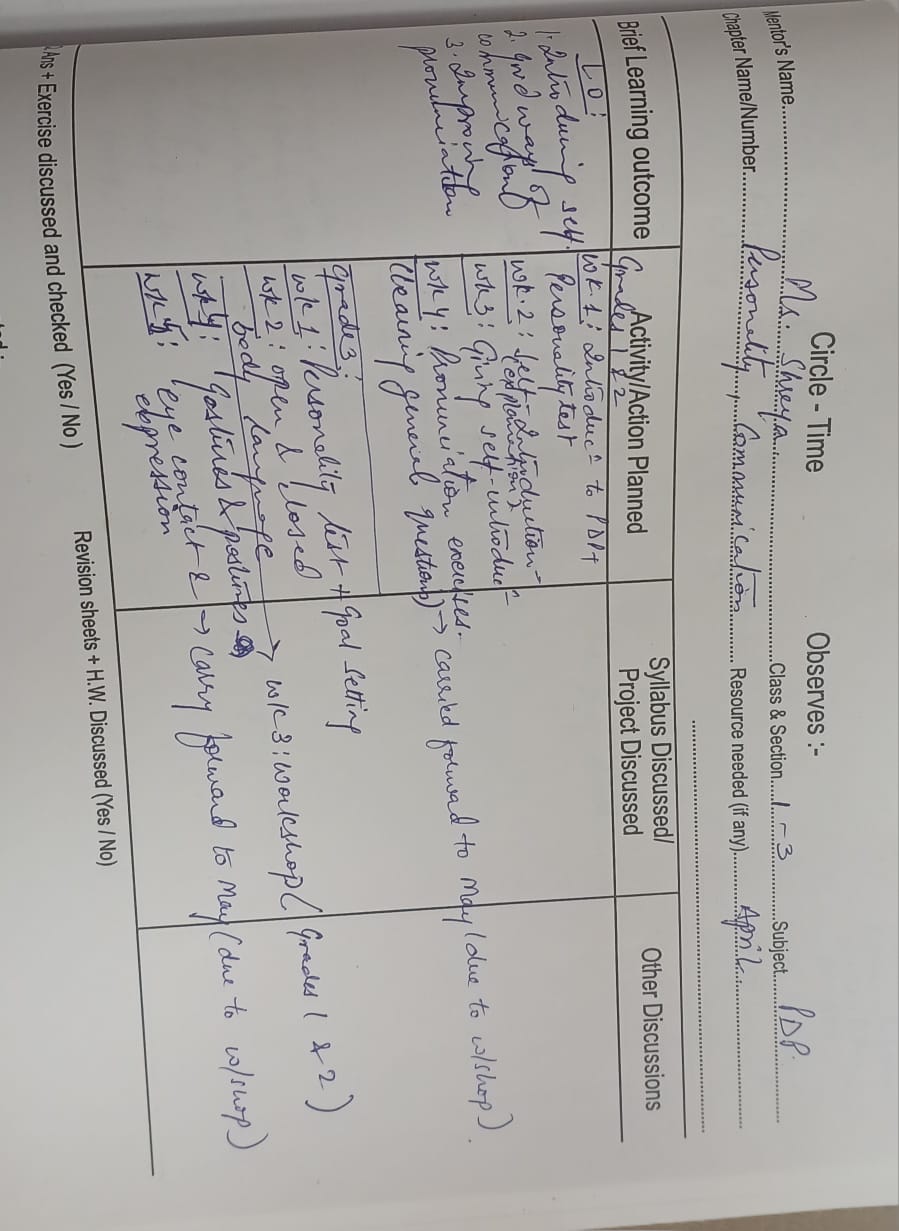 Circle - Time Observes :-
Mentor's Name.......... Ms. Shreya ..........Class & Section.....1 - 3..........Subject..... PDP.
Chapter Name/Number.......... Personality, Communication ..........Resource needed (if any).......... April ..........
Brief Learning outcome
Activity/Action Planned
Syllabus Discussed/
Project Discussed
Other Discussions
LO:
1. Introducing self.
2. Good way of
communication
3. Improving
pronunciation
Grades 1 & 2
wk. 1: Introducn to PDP +
Personality test
wk. 2: Self-Introduction -
(explanation)
wk 3: Giving self-introducn -
wk 4: Pronunciation exercises.
(learning general questions) → carried forward to May (due to w/shop).
Grade 3:
wk 1: Personality test + goal setting
wk 2: open & closed
body language → wk 3: workshop (Grades 1 & 2)
wk 4: Postures & postures
wk 5: eye contact & → carry forward to May (due to w/shop)
expression
Ans + Exercise discussed and checked (Yes / No)
Revision sheets + H.W. Discussed (Yes / No)